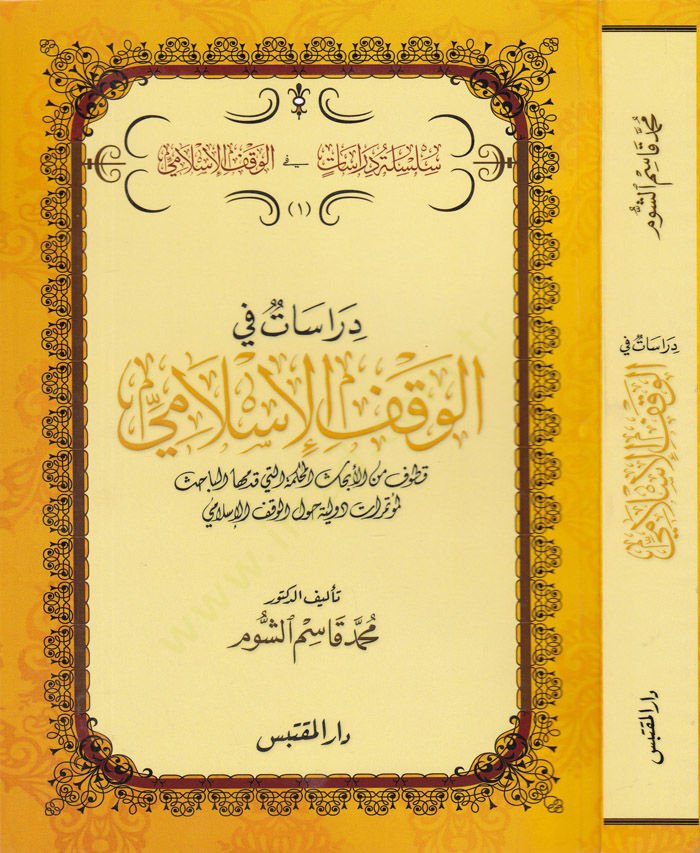 سلسلة دراسات في الوقف الإسلامي
(١)
دراساتٌ في
الوقف الإسلاميّ
قطوف من الأبحاث المحكمة التي قدمها الباحث
لمؤتمرات دولية حول الوقف الإسلامي
تأليف الدكتور
محمَّد قاسم الشُّوم
دار المقتبس
محمَّد قاسم الشُّوم
دراساتٌ في
الوقف الإسلاميّ
دار المقتبس